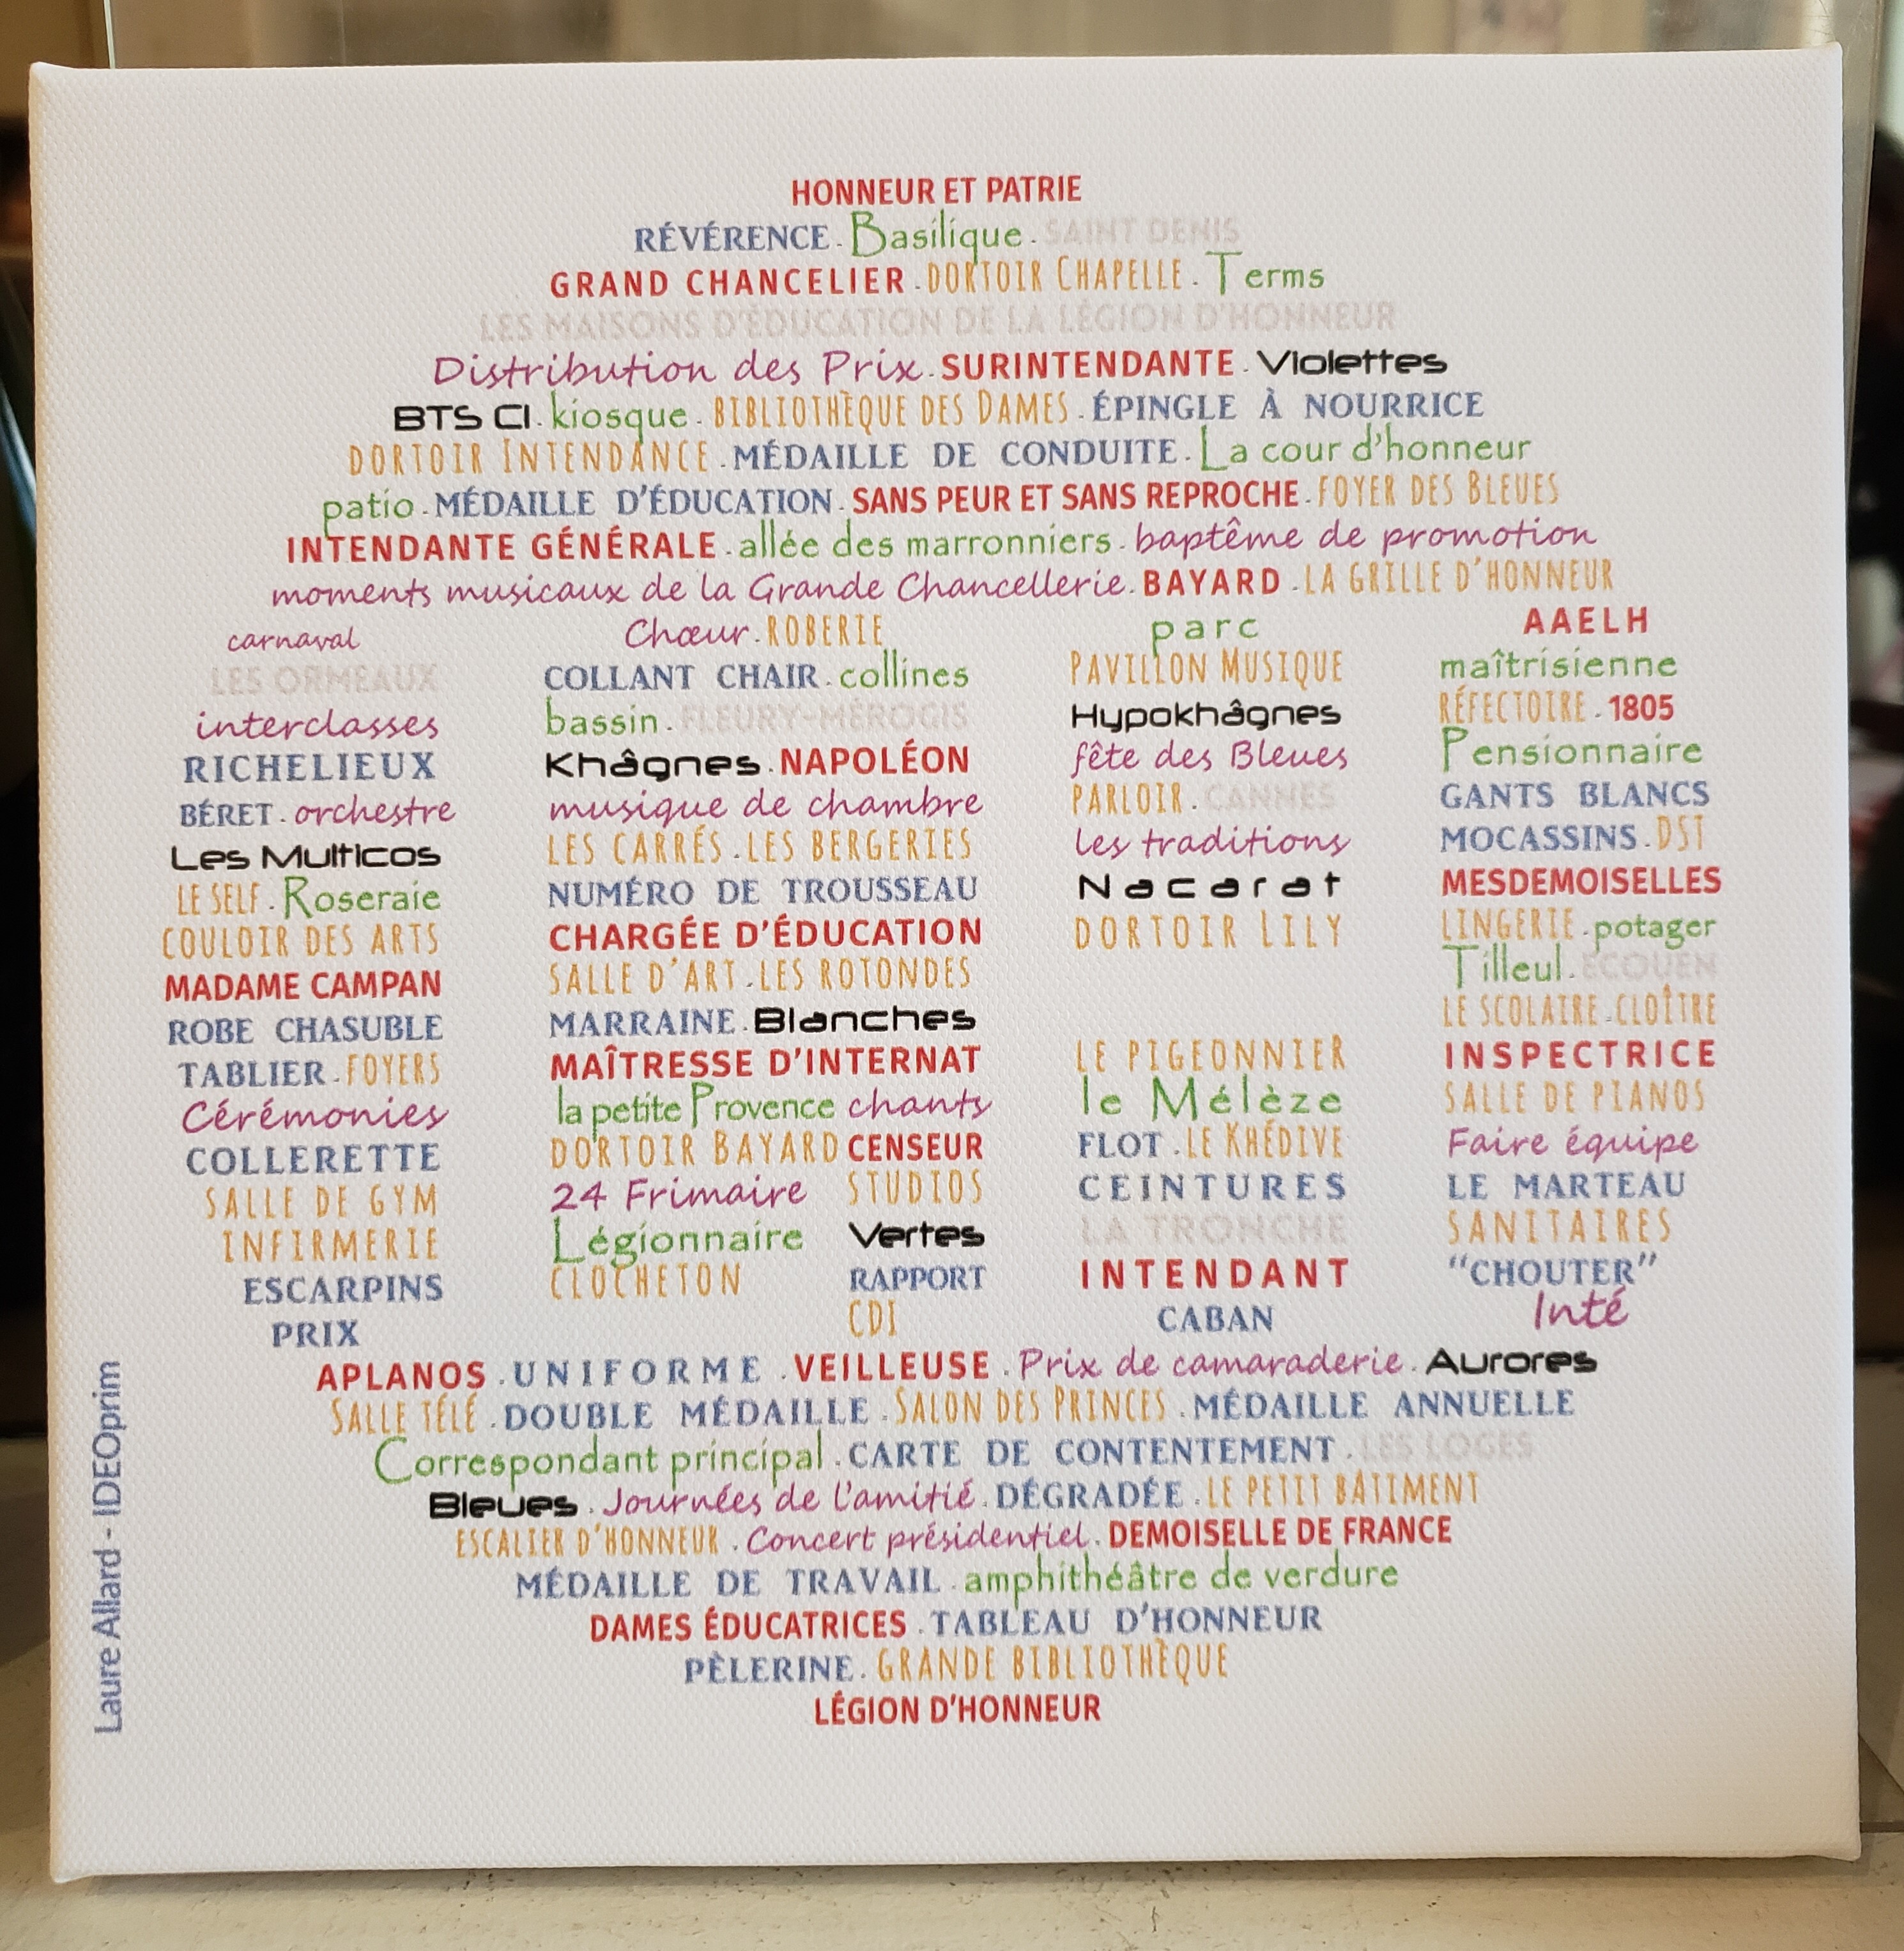 HONNEUR ET PATRIE
RÉVÉRENCE. Basilique. SAINT DENIS
GRAND CHANCELIER. DORTOIR CHAPELLE. Terms
LES MAISONS D'ÉDUCATION DE LA LÉGION D'HONNEUR
Distribution des Prix. SURINTENDANTE. Violettes
BTS CI. kiosque. BIBLIOTHÈQUE DES DAMES. ÉPINGLE À NOURRICE
DORTOIR INTENDANCE. MÉDAILLE DE CONDUITE. La cour d'honneur
patio. MÉDAILLE D'ÉDUCATION. SANS PEUR ET SANS REPROCHE. FOYER DES BLEUES
INTENDANTE GÉNÉRALE. allée des marronniers. baptême de promotion
moments musicaux de la Grande Chancellerie. BAYARD. LA GRILLE D'HONNEUR
carnaval
LES ORMEAUX
interclasses
RICHELIEUX
BÉRET. orchestre
Les Multicos
LE SELF. Roseraie
COULOIR DES ARTS
MADAME CAMPAN
ROBE CHASUBLE
TABLIER. FOYERS
Cérémonies
COLLERETTE
SALLE DE GYM
INFIRMERIE
ESCARPINS
PRIX
Chœur. ROBERIE
COLLANT CHAIR. collines
bassin. FLEURY-MÉROGIS
Khâgnes. NAPOLÉON
musique de chambre
LES CARRÉS. LES BERGERIES
NUMÉRO DE TROUSSEAU
CHARGÉE D'ÉDUCATION
SALLE D'ART. LES ROTONDES
MARRAINE. Blanches
MAÎTRESSE D'INTERNAT
la petite Provence chants
DORTOIR BAYARD CENSEUR
24 Frimaire STUDIOS
Légionnaire Vertes
CLOCHETON RAPPORT
CDI
parc
PAVILLON MUSIQUE
Hypokhâgnes
fête des Bleues
PARLOIR. CANNES
les traditions
Nacarat
DORTOIR LILY
LE PIGEONNIER
le Mélèze
FLOT. LE KHÉDIVE
CEINTURES
LA TRONCHE
INTENDANT
CABAN
AAELH
maîtrisienne
RÉFECTOIRE. 1805
Pensionnaire
GANTS BLANCS
MOCASSINS. DST
MESDEMOISELLES
LINGERIE. potager
Tilleul. ECOUEN
LE SCOLAIRE. CLOÎTRE
INSPECTRICE
SALLE DE PIANOS
Faire équipe
LE MARTEAU
SANITAIRES
"CHOUTER"
Inté
APLANOS. UNIFORME. VEILLEUSE. Prix de camaraderie. Aurores
SALLE TÉLÉ. DOUBLE MÉDAILLE. SALON DES PRINCES. MÉDAILLE ANNUELLE
Correspondant principal. CARTE DE CONTENTEMENT. LES LOGES
Bleues. Journées de l'amitié. DÉGRADÉE. LE PETIT BÂTIMENT
ESCALIER D'HONNEUR. Concert présidentiel. DEMOISELLE DE FRANCE
MÉDAILLE DE TRAVAIL. amphithéâtre de verdure
DAMES ÉDUCATRICES. TABLEAU D'HONNEUR
PÈLERINE. GRANDE BIBLIOTHÈQUE
LÉGION D'HONNEUR
Laure Allard - IDEOprim